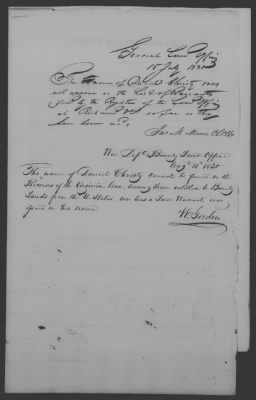 General Land Office
15 July 1830
The name of Daniel Christy does
not appear on the List of Warrants
filed by the Register of the Land Office
at Richmond Va so far as they
have been
War Dept Bounty Land Office
Augt 16th 1830
The name of Daniel Christy cannot be found on the
Records of the Virginia line, among those entitled to Bounty
Lands from the U. States, nor has a Land Warrant ever
issued in his name.
W Gordon